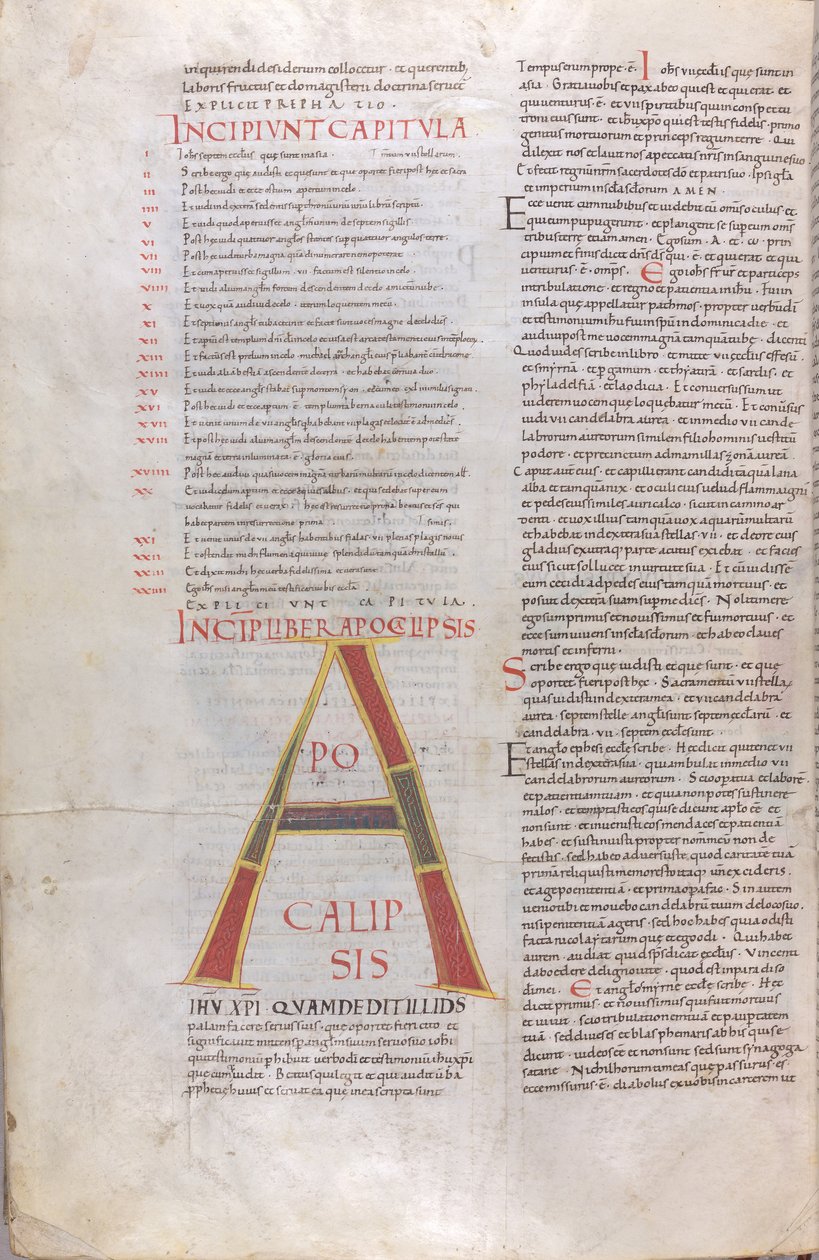 inquirendi desiderium collocetur · et querentib;
laboris fructus et do magisterii doctrina seruet̄
EXPLICIT PREPHATIO ·
INCIPIVNT CAPITVLA
I Ioh̄s septem eccl̄iis que sunt in asia .
II Scribe ergo que uidisti et que sunt et que oportet fieri post hec
III Post hec uidi et ecce ostium apertum in celo .
IIII Et uidi in dextera sedentis sup thronum librū scriptū .
V Et uidi quod aperuisset angl̄m unum de septem sigillis .
VI Post hec uidi quatuor angl̄os stantes sup quatuor angulos terre .
VII Post hec uidi turba magna quā dinumerare nemo poterat .
VIII Et cum aperuisset sigillum · VII · factum est silentio in celo .
VIIII Et uidi alium angl̄m fortem descendentem de celo amictū nube .
X Et uox quā audiui de celo · iterum loquentem mecū .
XI Et septimus angl̄s tuba cecinit et facte sunt uoces magne de celo
XII Et aptū est templum dn̄i in celo et uisa est arca testamenti eius
XIII Et factū est prelium in celo · michael
XIIII Et uidi aliā bestiā ascendente de terrā · et habebat cornua duo .
XV Et uidi et ecce agn̄s stabat sup montem syon .
XVI Post hec uidi et ecce apertum · ē · templum tabernaculi testimonii in celo .
XVII Et uenit unum de vii angl̄is
XVIII Et post hec uidi alium angl̄m descendentē de celo habentem potestatē
magnā et terra inluminata · ē · gloria eius .
XVIIII Post hec audiui quasi uocem magnā turbarum multarū in celo dicentem all̄ .
XX Et uidi celum apertum et ecce equus albus · et qui sedebat super eum
uocabatur fidelis et uerax ·
habet partem in resurrectione prima
XXI Et uenit unus de vii angl̄is habentibus fialas · vii plenas plagis nouis
XXII Et ostendit mihi flumen aque uiue splendidū tamquā christallū .
XXIII Et dixit michi hec uerba fidelissima et uera sunt
XXIIII Ego ih̄s misi angl̄m meū testificari uobis
EXPLICIUNT CAPITULA .
INCĪP LIBER APOCALIPSIS
APO
CALIP
SIS
IHV̄ XPĪ · QUAM DEDIT ILLI DS̄
palam facere seruis suis · que oportet fieri cito et
significauit mittens p angl̄m suum seruo suo ioh̄i
qui testimoniū phibuit uerbo dī et testimoniū ih̄u xp̄i
quecumq; uidit · Beatus qui legit et qui audit uba
pphetie huius et seruat ea que in ea scripta sunt
Tempus enim prope · ē · Ioh̄s vii eccl̄iis que sunt in
asia · Gratia uobis et pax ab eo qui est et qui erat · et
qui uenturus · ē · et vii spiritibus qui in conspectu
troni eius sunt · et ih̄u xpō qui est testis fidelis · primo
genitus mortuorum et princeps regum terre · Qui
dilexit nos et lauit nos a peccatis nr̄is in sanguine suo ·
Et fecit regnū nr̄m sacerdotes dō et patri suo · Ipsi gl̄a
et imperium in secl̄a seclorum AMEN ·
Ecce uenit cum nubibus et uidebit eū omis oculus · et
qui eum pupugerunt · et plangent se sup eum omīs
tribus terre etiam amen · Ego sum · A · et · ω · prin
cipium et finis dicit dn̄s ds̄ qui · ē · et qui erat et qui
uenturus · ē · omps̄ · Ego ioh̄s fr̄ ur̄ et particeps
in tribulatione · et regno et patientia in ih̄u · Fui in
insula que appellatur pathmos · propter uerbū dī
et testimonium ih̄u fui in spū in dominica die · et
audiui post me uocem magnā tamquā tube · dicenti
Quod uides scribe in libro · et mitte vii eccl̄iis effesū .
et smyrnā · et pgamum · et thyatirā · et sardis · et
phyladelfiā · et laodicia · Et conuersus sum ut
uiderem uocem que loquebatur mecū · Et conūsus
uidi vii candelabra aurea · et in medio vii cande
labrorum aureorum similem filio hominis uestitū
podore · et precinctum ad mamillas zonā aureā .
Caput autē eius · et capilli erant candidi tāquā lana
alba et tamquā nix · et oculi eius uelud flamma ignī
et pedes eius similes auricalco · sicut in camino ar
denti · et uox illius tamquā uox aquarū multarū
et habebat in dextera sua stellas · vii · et de ore eius
gladius ex utraq; parte acutus exiebat · et facies
eius sicut sol lucet in uirtute sua · Et cū uidissē
eum cecidi ad pedes eius tamquā mortuus · et
posuit dexterā suam sup me dicēs · Noli timere
ego sum primus et nouissimus et fui mortuus · et
ecce sum uiuens in secl̄a seclorum · et habeo claues
mortis et inferni ·
Scribe ergo que uidisti et que sunt · et que
oportet fieri post hec · Sacramentū vii stella₂
quas uidisti in dextera mea · et vii candelabra
aurea · septem stelle angl̄i sunt septem eccl̄arū · et
candelabra · vii · septem eccl̄e sunt ·
Et angl̄o ephesi eccl̄e scribe · Hec dicit qui tenet vii
stellas in dextera sua · qui ambulat in medio vii
candelabrorum aureorum · Scio opera tua et laborē ·
et patientiam tuam · et quia non potes sustinere
malos · et temptasti eos qui se dicunt aplōs eē et
non sunt · et inuenisti eos mendaces et patientiā
habes · et sustinuisti propter nomen meū non de
fecisti · sed habeo aduersus te quod caritatē tuā
primā reliquisti memor esto itaq; unde excideris ·
et age penitentiā · et prima opera fac · Sin autem
uenio tibi et mouebo candelabrū tuum de loco suo ·
nisi penitentiā ageris · sed hoc habes quia odisti
facta nicolaytarum que et ego odi · Qui habet
aurem · audiat quid sps̄ dicat eccl̄iis · Vincenti
dabo edere de ligno uite · quod est in paradiso
dī mei · Et angl̄o smyrne eccl̄e scribe · Hec
dicit primus · et nouissimus qui fuit mortuus
et uiuit · scio tribulationem tuā et paupertatem
tuā · sed diues es et blasphemaris ab his qui se
dicunt iudeos eē et non sunt sed sunt synagoga
satane · Nichil horum timeas que passurus · es ·
ecce missurus · ē · diabolus ex uobis in carcerem ut